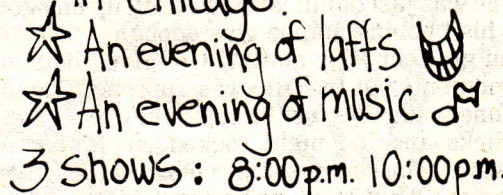 in Chicago.
An evening of laffs
An evening of music
3 Shows: 8:00p.m. 10:00pm